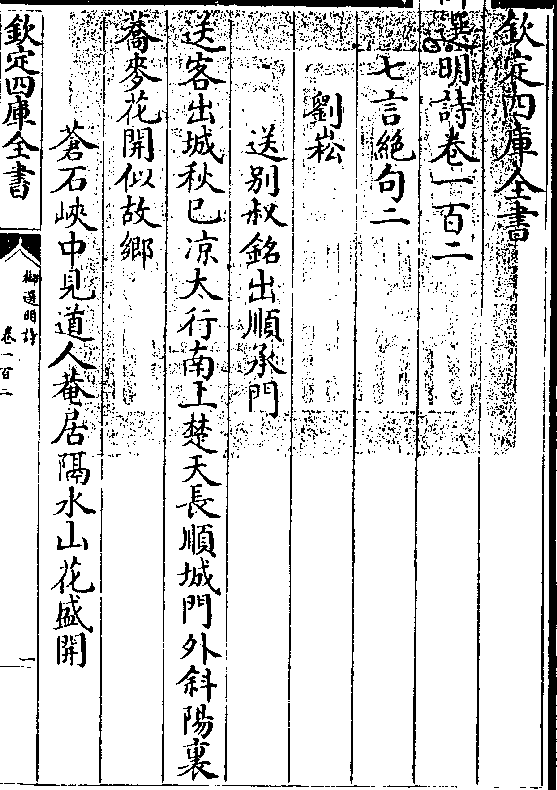 欽定四庫全書
選明詩卷一百二
七言絶句二
劉崧
送别叔銘出順承門
送客出城秋已凉太行南上楚天長順城門外斜陽裏
蕎麥花開似故鄉
蒼石峽中見道人菴居隔水山花盛開
欽定四庫全書
選明詩
卷一百二
一